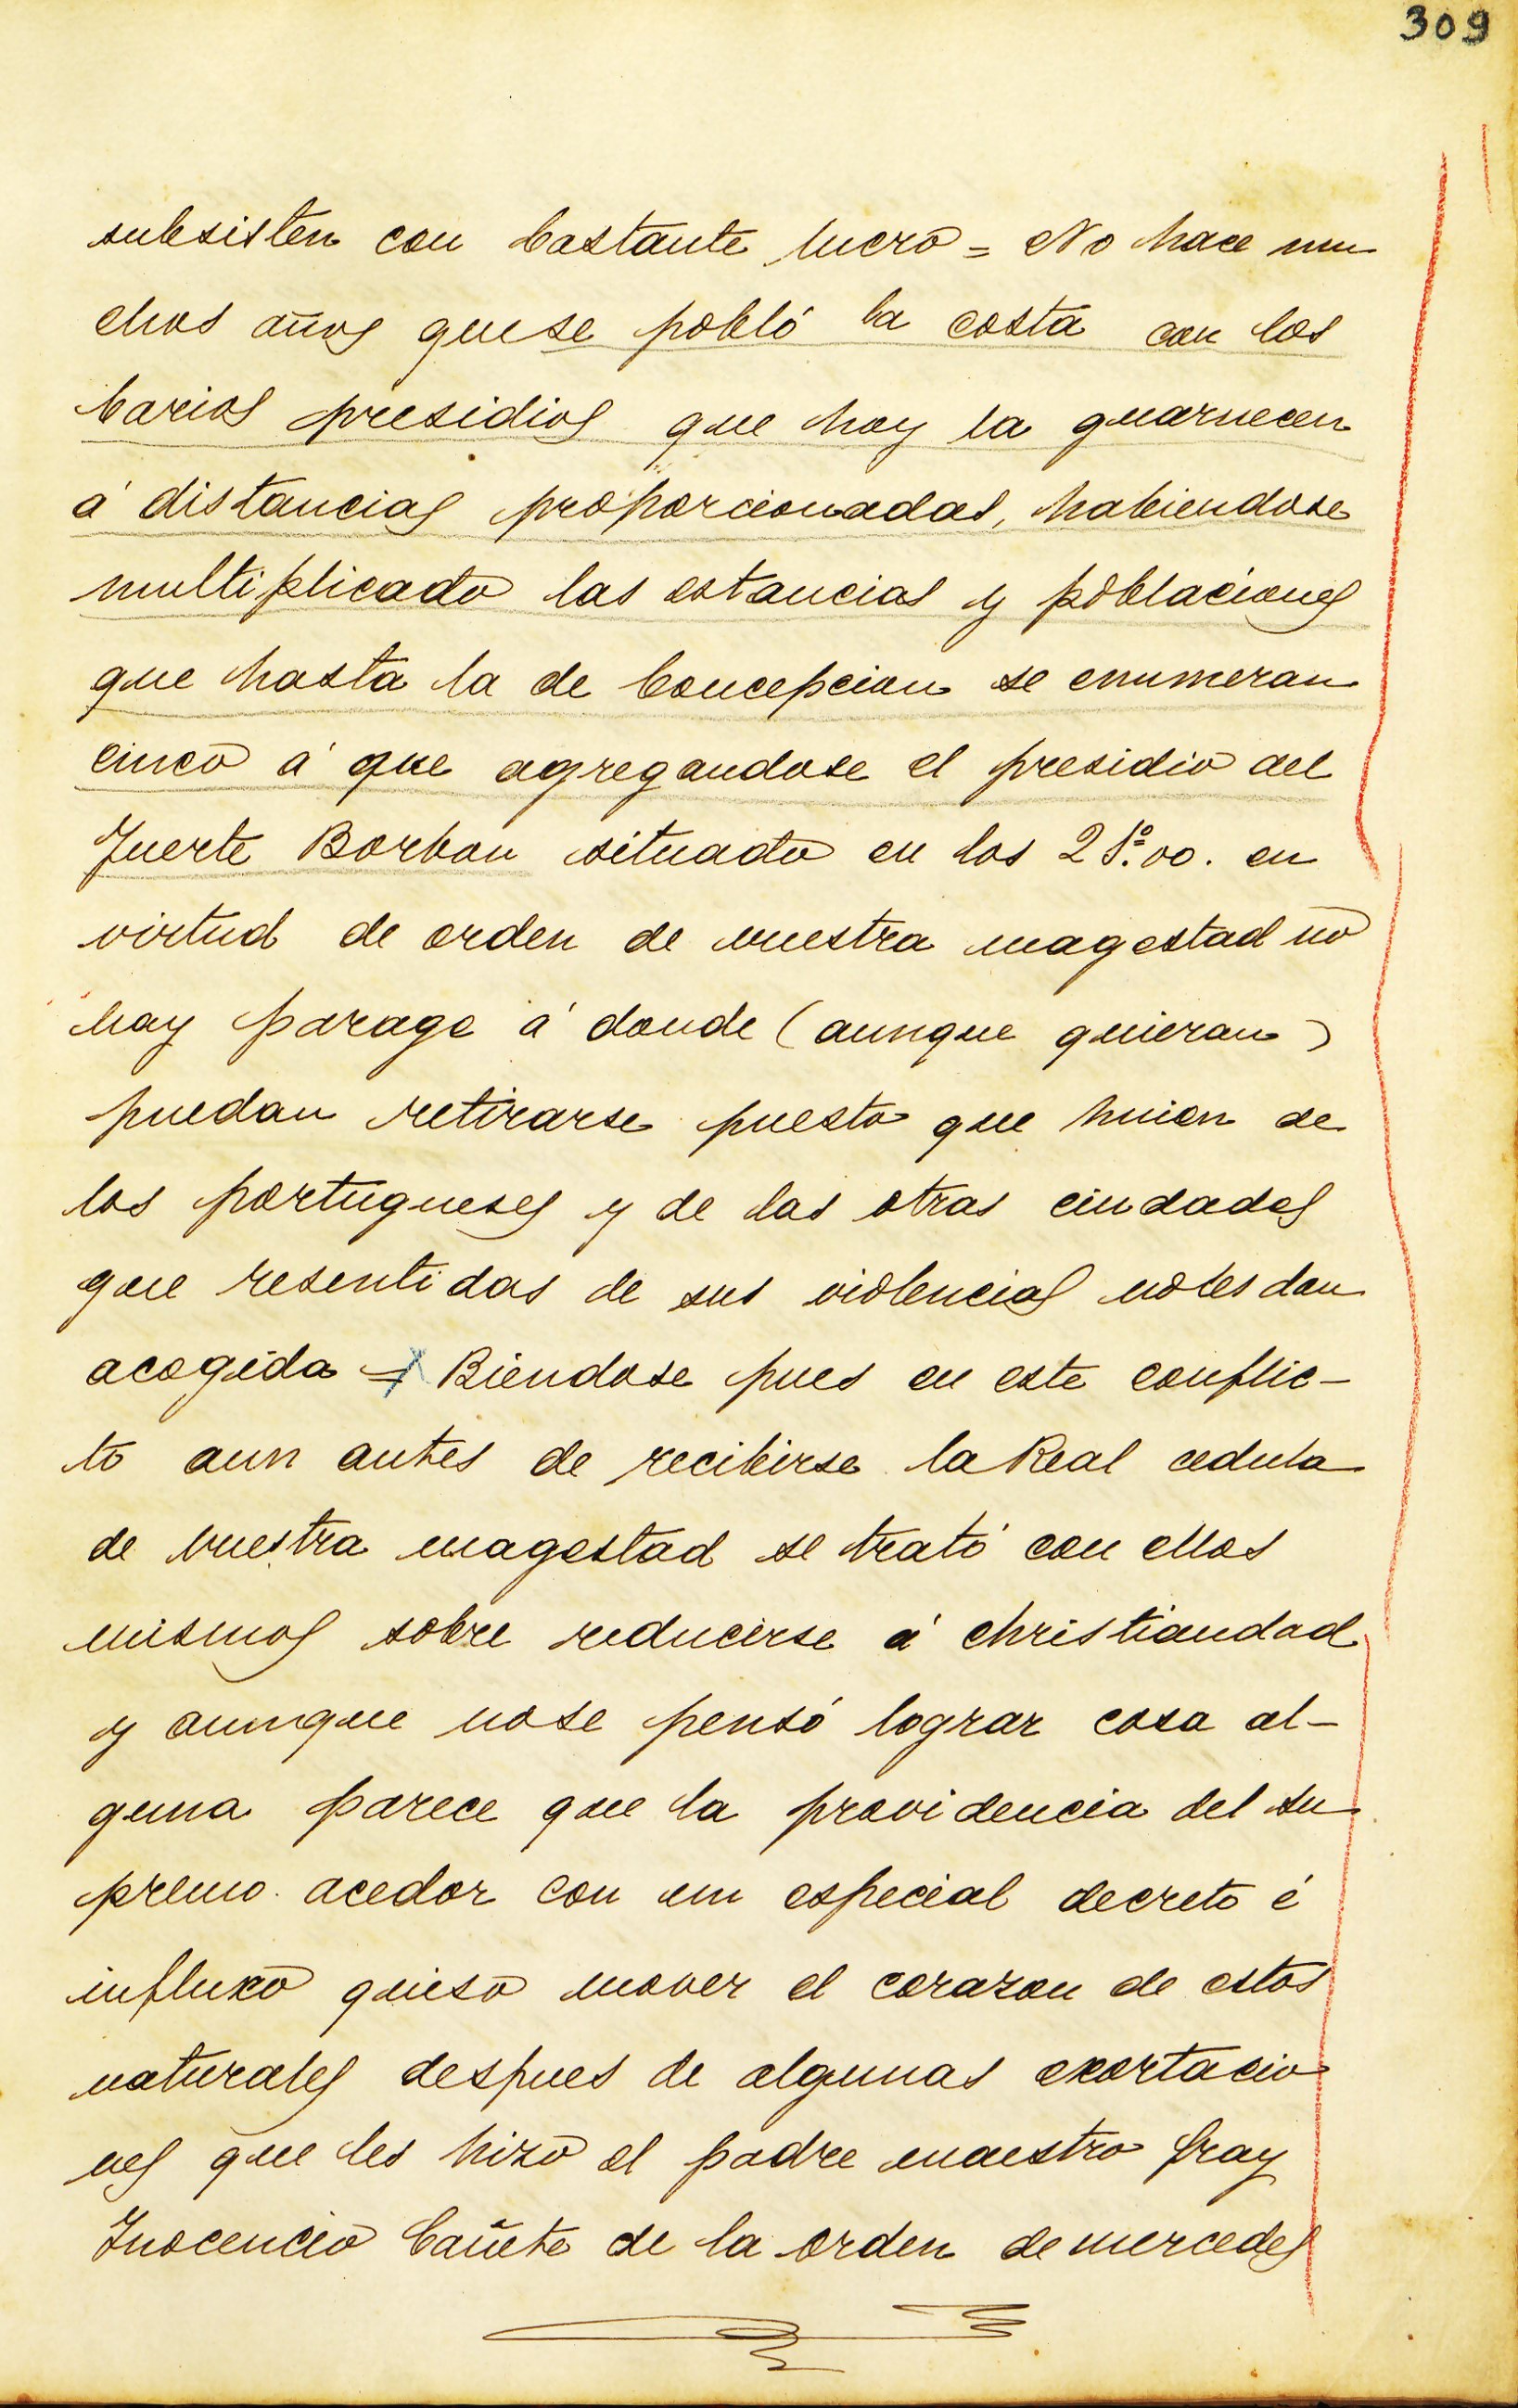 309
subsisten con bastante lucro = No hace mu
chos años quese pobló la costa con los
barios presidios que hoy la guarnecen
á distancias proporcionadas, habiendose
multiplicado las estancias y poblaciones
que hasta la de Concepcion se enumeran
cinco á que agregandose el presidio del
Fuerte Borbon situado en los 21º.00. en
virtud de orden de vuestra magestad no
hay parage á donde (aunque quieran)
puedan retirarse puesto que huien de
los portugueses y de las otras ciudades
que resentidas de sus violencias noles dan
acogida = Biendose pues en este conflic-
to aun antes de recibirse la Real cedula
de vuestra magestad se trató con ellos
mismos sobre reducirse á christiandad
y aunque nose pensó lograr cosa al-
guna parece que la providencia del su
premo acedor con un especial decreto é
influxo quiso mover el corazon de estos
naturales despues de algunas exortacio
nes que les hizo el padre maestro fray
Inocencio Cañete de la orden de mercedes